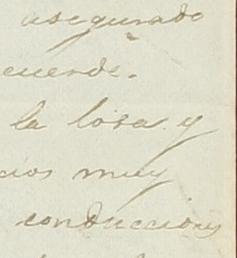 asegurado
cuerde.
la losa y
cios muy
conducciones